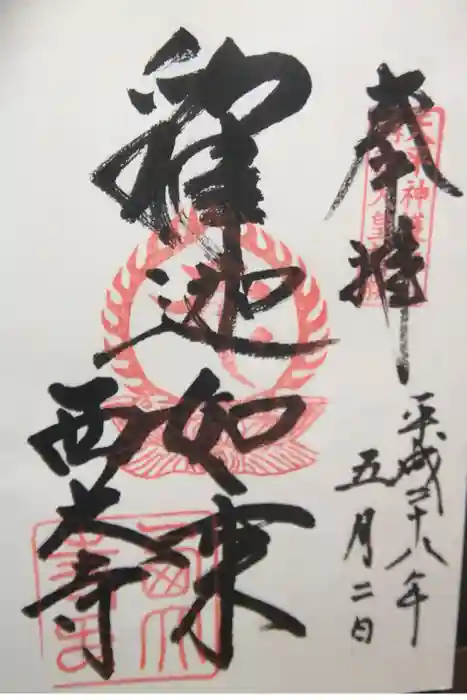 奉拝
平成二十八年
五月二日
釋迦如来
西大寺